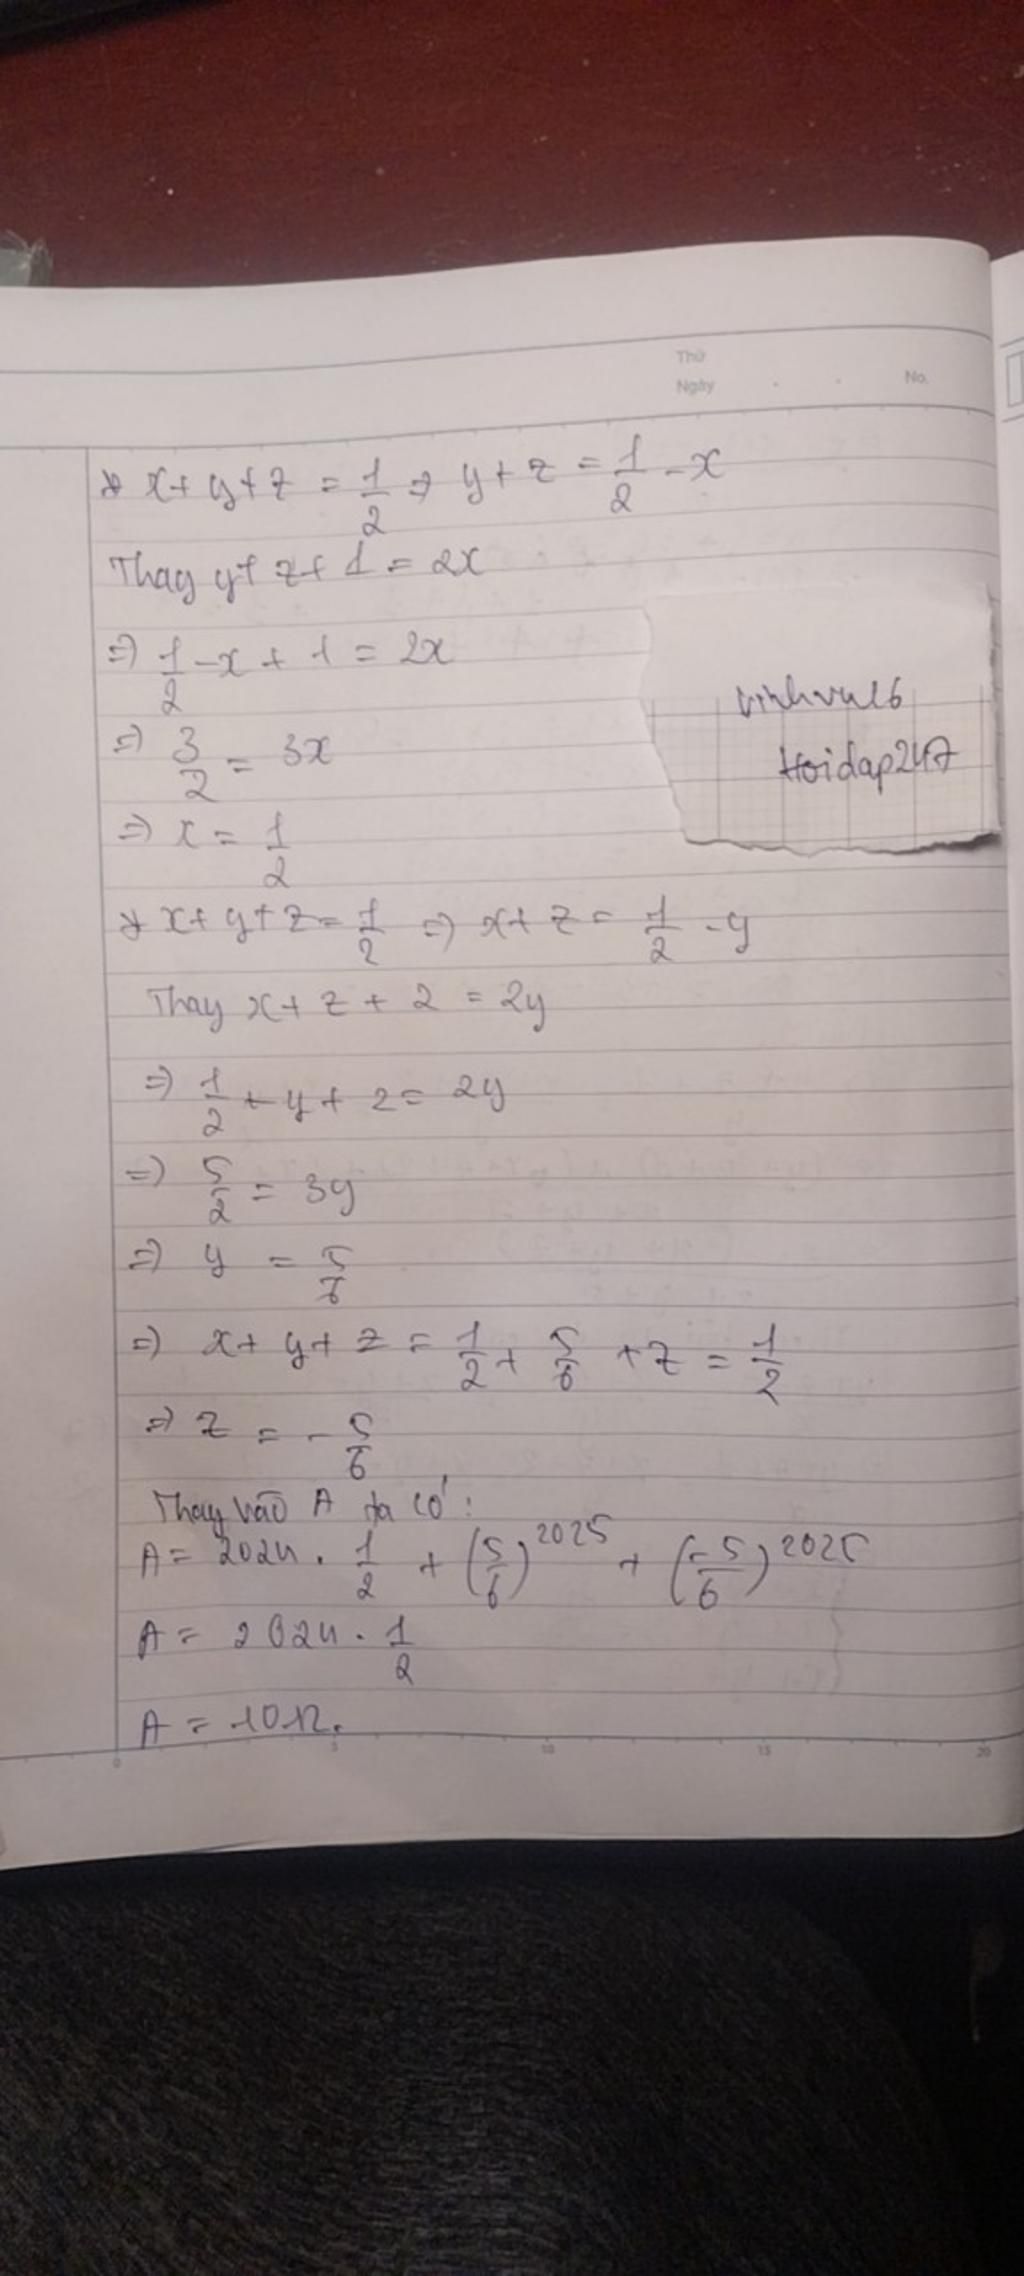 Thứ
Ngày
No.
* x + y + z = 1/2 => y + z = 1/2 - x
Thay y + z + 1 = 2x
=> 1/2 - x + 1 = 2x
=> 3/2 = 3x
=> x = 1/2
vinhvu16
Hoidap247
* x + y + z = 1/2 => x + z = 1/2 - y
Thay x + z + 2 = 2y
=> 1/2 - y + 2 = 2y
=> 5/2 = 3y
=> y = 5/6
=> x + y + z = 1/2 + 5/6 + z = 1/2
=> z = -5/6
Thay vào A ta có:
A = 2024 . 1/2 + (5/6)^2025 + (-5/6)^2025
A = 2024 . 1/2
A = 1012.
0 5 10 15 20